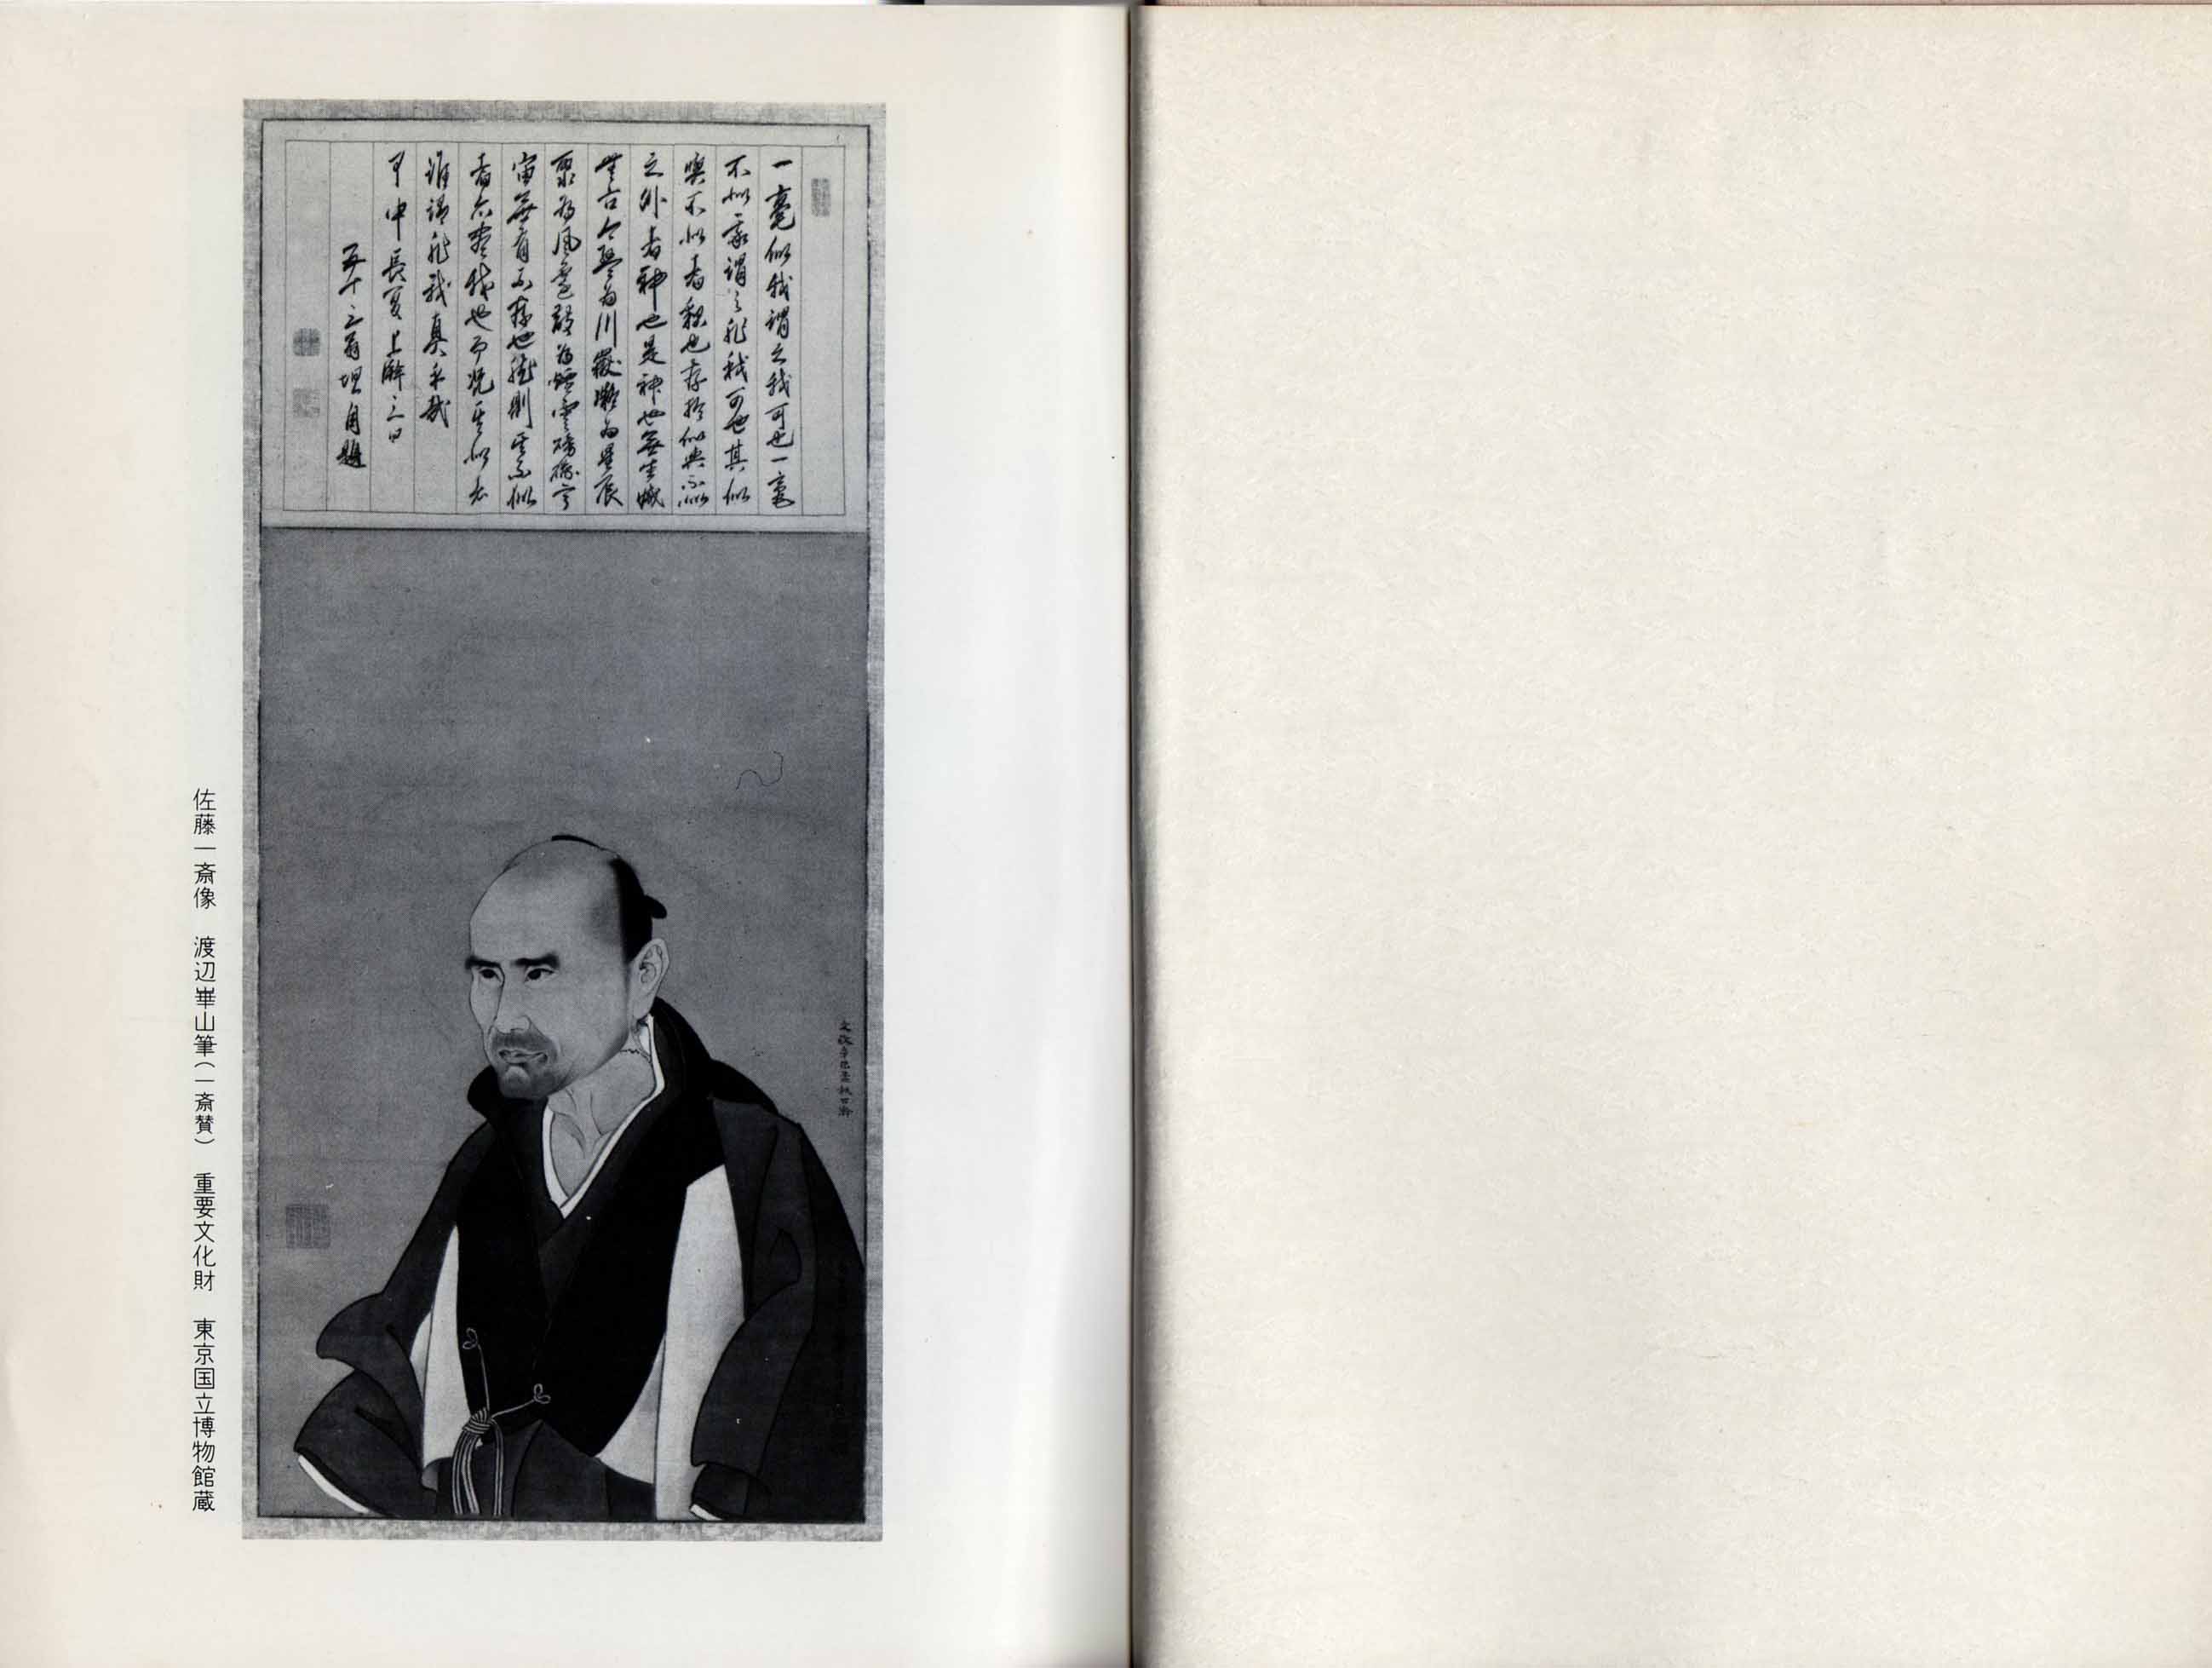 一毫似我謂之我可也一毫
不似我謂之非我可也其似
與不似者貌也存於似與不似
之外者神也是神也無生滅
無古今融為川嶽凝為星辰
聚為風霆散為煙雲磅礴宇
宙無有不存也然則其不似
者亦盡我也而況其似者
誰謂非我真乎哉
甲申長夏上澣三日
五十三翁坦自題
文政辛巳孟秋
佐藤一斎像　渡辺崋山筆（一斎賛）　重要文化財　東京国立博物館蔵